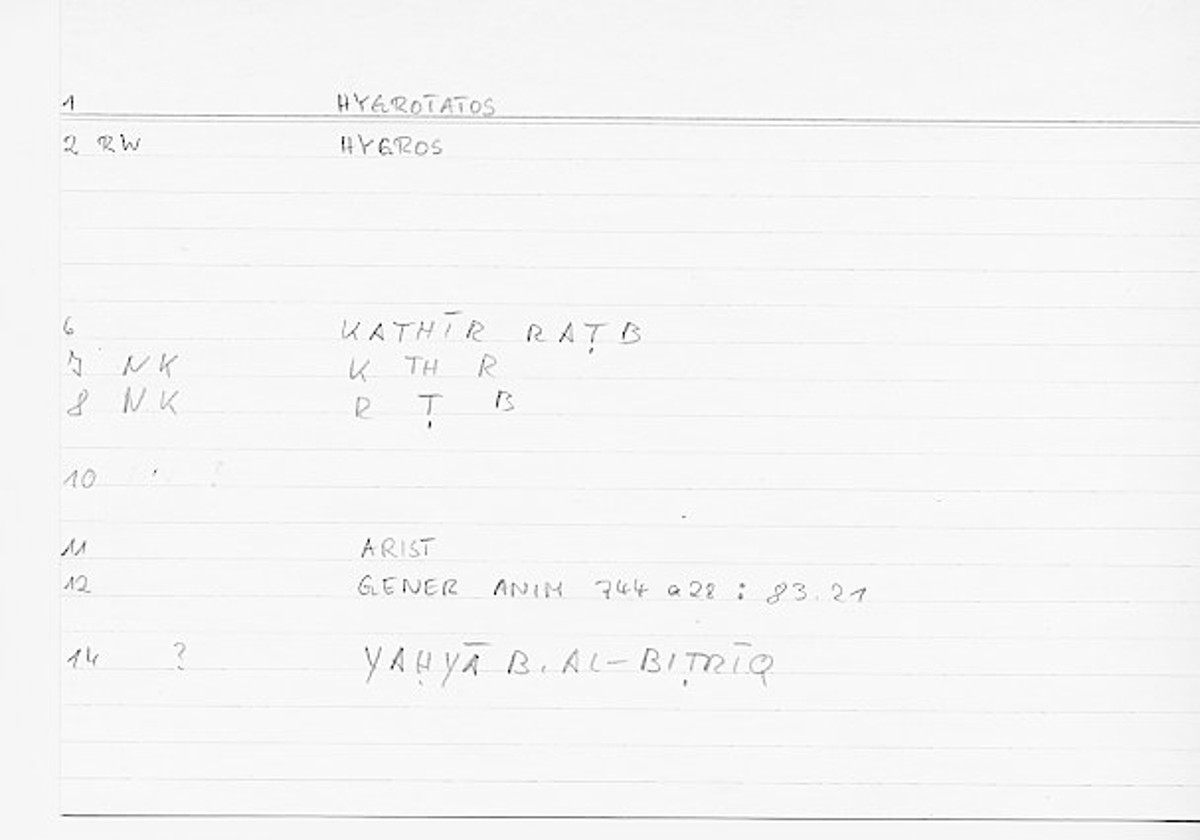 1 HYGROTATOS
2 RW HYGROS
6 KATHĪR RAṬB
7 NK K TH R
8 NK R Ṭ B
10
11 ARIST
12 GENER ANIM 744 a28 : 83.21
14 ? YAḤYĀ B. AL-BIṬRĪQ